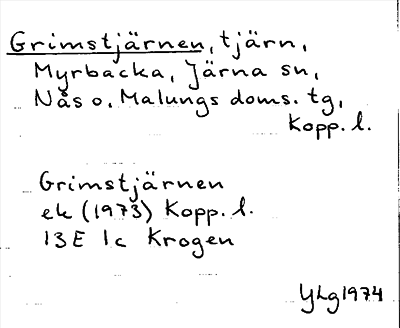 Grimstjärnen, tjärn,
Myrbacka, Järna sn,
Nås o. Malungs doms. tg,
Kopp. l.
Grimstjärnen
ek (1973) Kopp. l.
13E 1c Krogen
YLg 1974